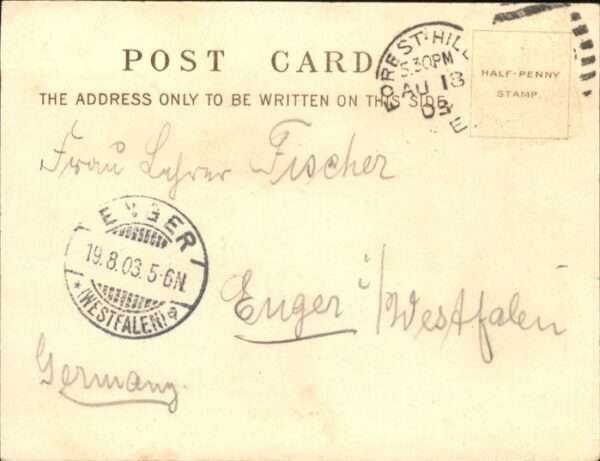 POST CARD
THE ADDRESS ONLY TO BE WRITTEN ON THIS SIDE.
FOREST-HILL
5.30PM
AU 18
03
E
HALF-PENNY
STAMP.
Frau Lehrer Fischer
ENGER
19.8.03.5-6N.
* (WESTFALEN) a
Enger i/Westfalen
Germany.